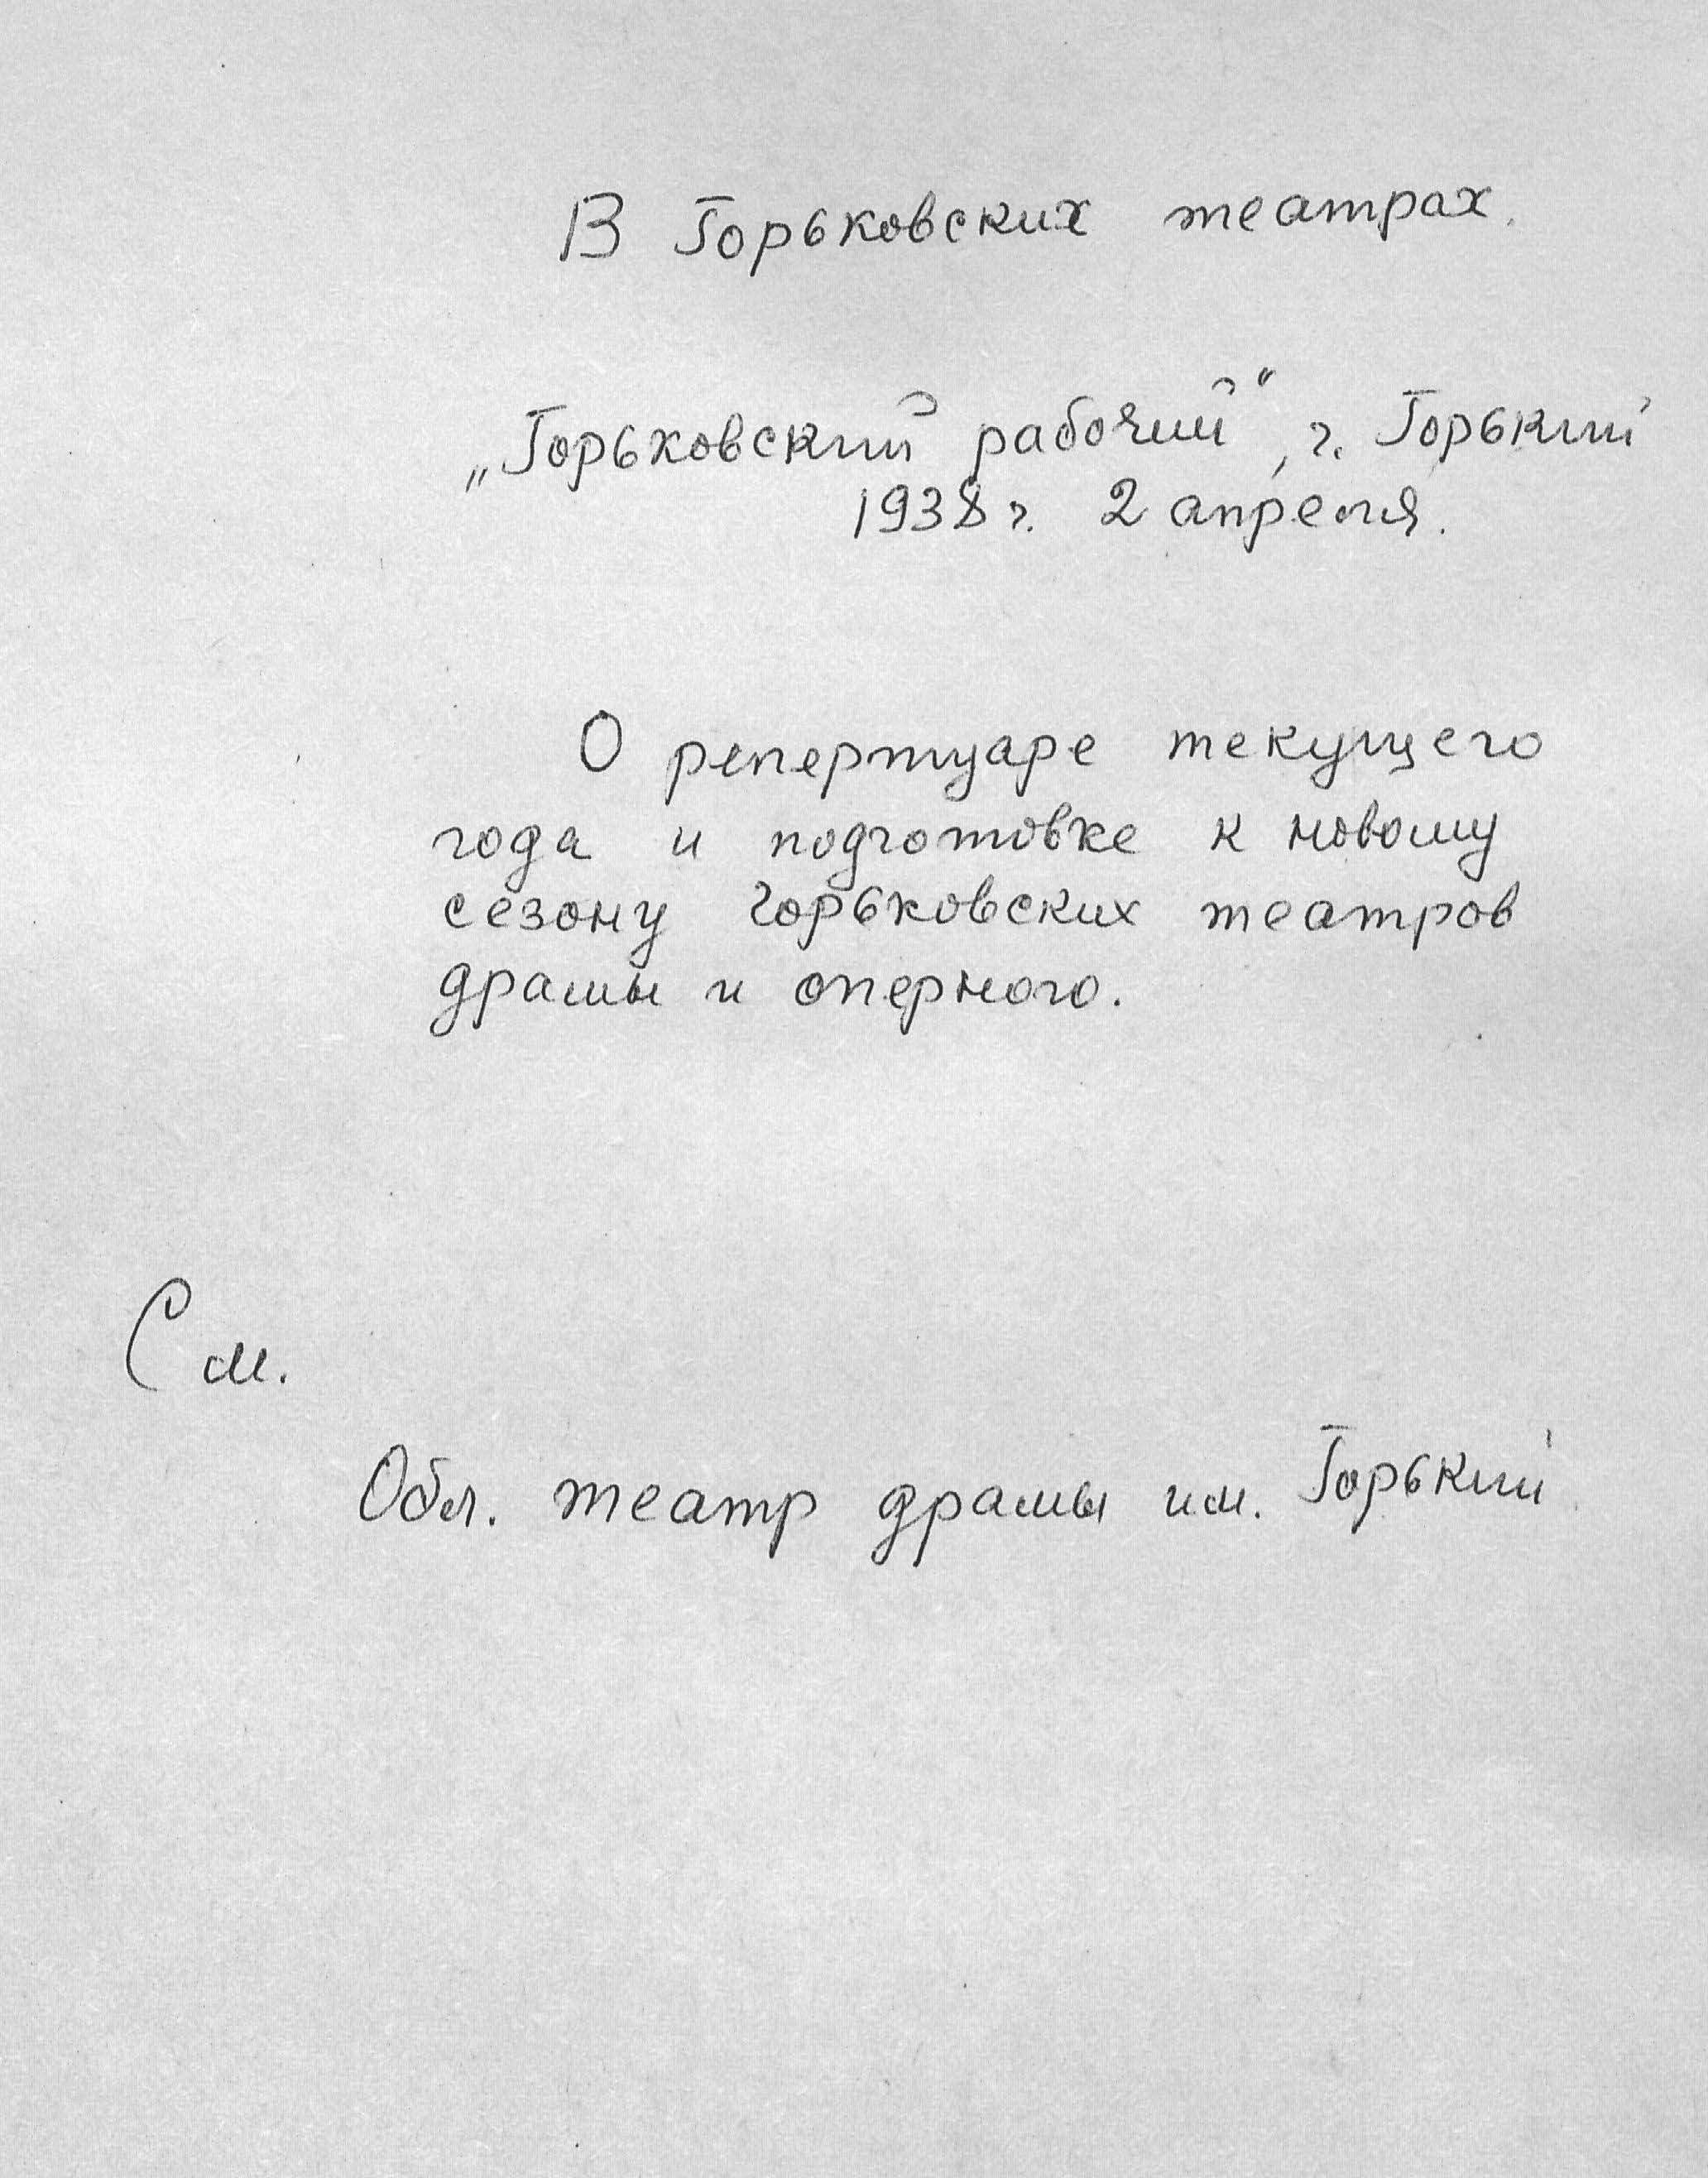 В Горьковских театрах.
„Горьковский рабочий“, г. Горький
1938 г. 2 апреля.
О репертуаре текущего
года и подготовке к новому
сезону Горьковских театров
драмы и оперного.
См.
Обл. театр драмы им. Горький